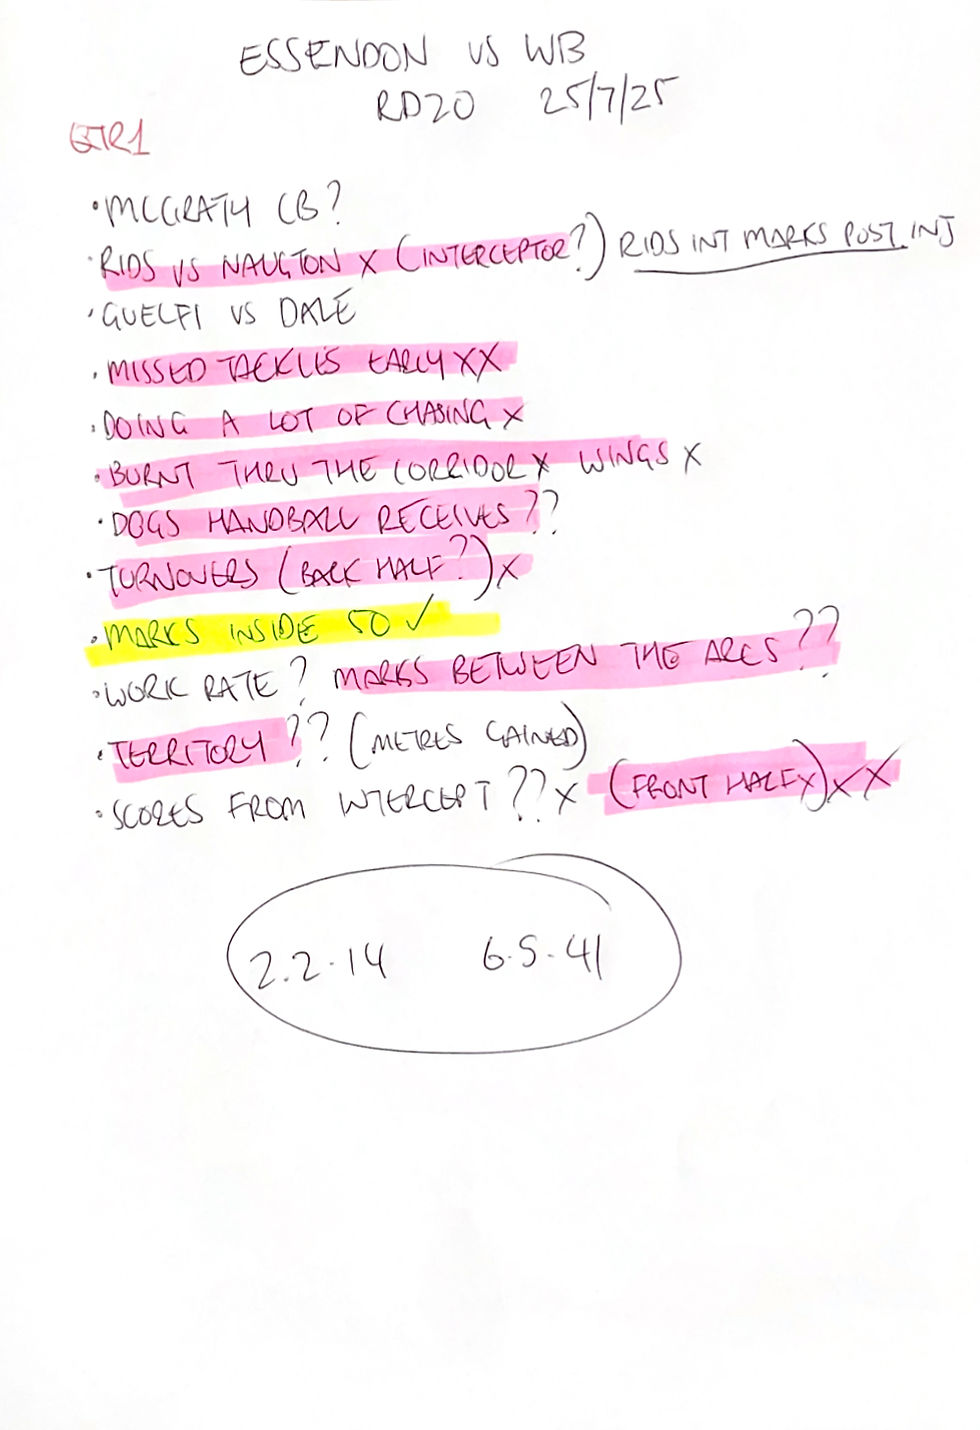 ESSENDON VS WB
RD20 25/7/25
QTR1
• MCGRATH CB?
• RIDS VS NAUGTON X (INTERCEPTOR?) RIDS INT MARKS POST INJ
• GUELFI VS DALE
• MISSED TACKLES EARLY XX
• DOING A LOT OF CHASING X
• BURNT THRU THE CORRIDOR X WINGS X
• DOGS HANDBALL RECEIVES??
• TURNOVERS (BACK HALF?) X
• MARKS INSIDE 50 ✓
• WORK RATE? MARKS BETWEEN THE ARCS??
• TERRITORY?? (METRES GAINED)
• SCORES FROM INTERCEPT??X (FRONT HALF X) XX
2.2.14 6.5.41